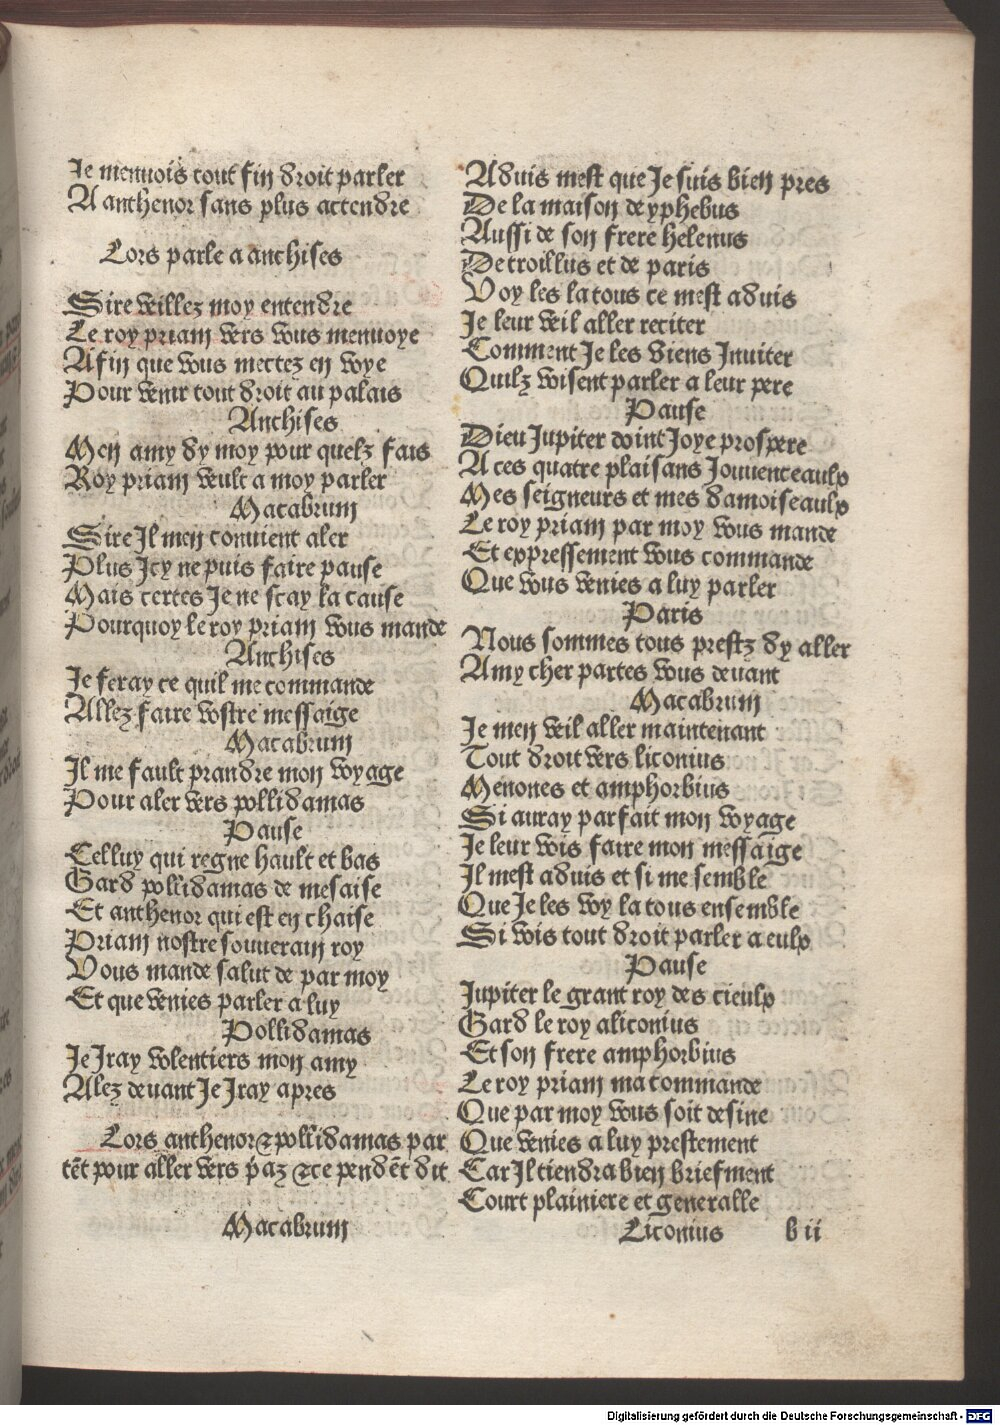 Je menuois tout fin droit parler
A anthenor sans plus actendre
Lors parle a anchises
Sire veillez moy entendre
Le roy priam vers vous menuoye
Afin que vous mectez en voye
Pour venir tout droit au palais
Anchises
Men amy dy moy pour quelz fais
Roy priam veult a moy parler
Macabrum
Sire Il men conuient aler
Plus Icy ne puis faire pause
Mais certes Je ne scay la cause
Pourquoy le roy priam vous mande
Anchises
Je feray ce quil me commande
Allez faire vostre messaige
Macabrum
Il me fault prandre mon voyage
Pour aler vers pollidamas
Pause
Celluy qui regne hault et bas
Gard pollidamas de mesaise
Et anthenor qui est en chaise
Priam nostre souuerain roy
Vous mande salut de par moy
Et que venies parler a luy
Pollidamas
Je Iray volentiers mon amy
Alez deuant Je Iray apres
Lors anthenor & pollidamas par
tēt pour aller vers p̄az & ce pendēt dit
Macabrum
Aduis mest que Je suis bien pres
De la maison de yphebus
Aussi de son frere helenus
De troillus et de paris
Voy les la tous ce mest aduis
Je leur veil aller reciter
Comment Je les viens Inuiter
Quilz visent parler a leur pere
Pause
Dieu Jupiter doint Joye prospere
A ces quatre plaisans Jouuenceaulx
Mes seigneurs et mes damoiseaulx
Le roy priam par moy vous mande
Et expressement vous commande
Que vous venies a luy parler
Paris
Nous sommes tous prestz dy aller
Amy cher partes vous deuant
Macabrum
Je men veil aller maintenant
Tout droit vers liconius
Menones et amphorbius
Si auray parfait mon voyage
Je leur vois faire mon messaige
Il mest aduis et si me semble
Que Je les voy la tous ensemble
Si vois tout droit parler a eulx
Pause
Jupiter le grant roy des cieulx
Gard le roy aliconius
Et son frere amphorbius
Le roy priam ma commande
Que par moy vous soit desine
Que venies a luy prestement
Car Il tiendra bien briefment
Court plainiere et generalle
Liconius b ii
Digitalisierung gefördert durch die Deutsche Forschungsgemeinschaft - DFG